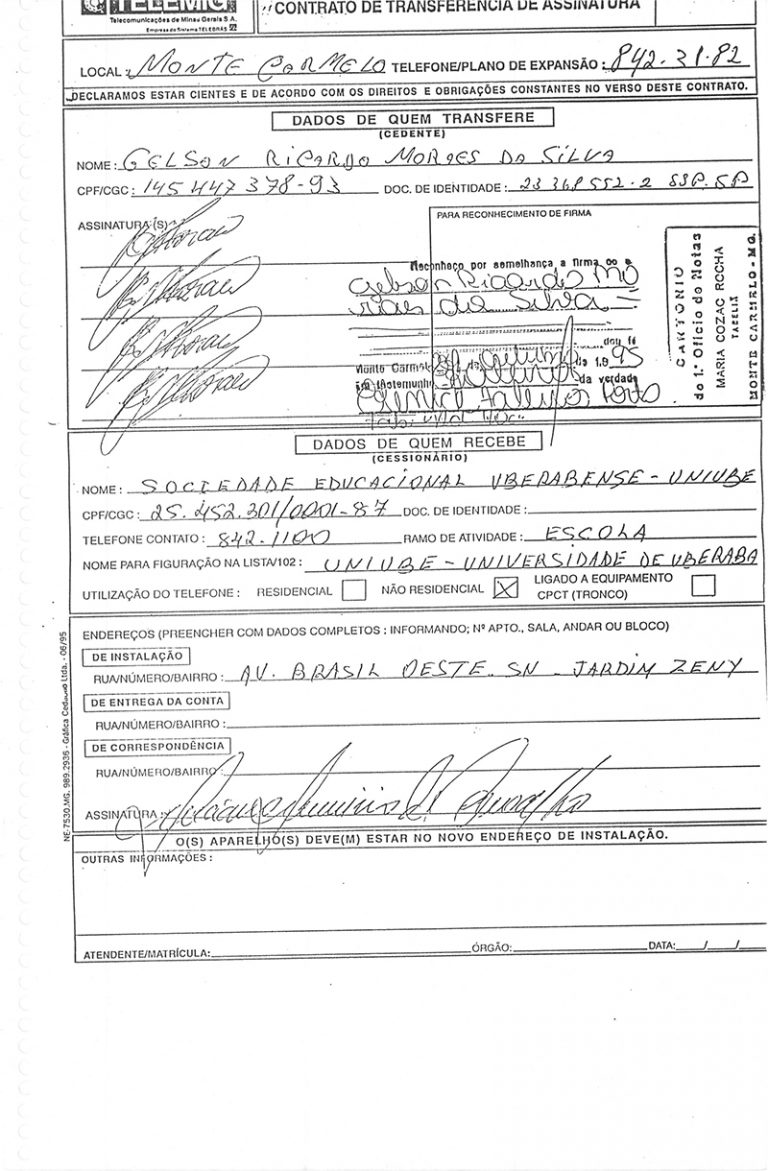 TELEMIG
Telecomunicações de Minas Gerais S.A.
Empresa do Sistema TELEBRÁS
CONTRATO DE TRANSFERÊNCIA DE ASSINATURA
LOCAL: MONTE CARMELO TELEFONE/PLANO DE EXPANSÃO: 842.31.82
DECLARAMOS ESTAR CIENTES E DE ACORDO COM OS DIREITOS E OBRIGAÇÕES CONSTANTES NO VERSO DESTE CONTRATO.
DADOS DE QUEM TRANSFERE
(CEDENTE)
NOME: GELSON RICARDO MORAES DA SILVA
CPF/CGC: 145.447.378-93 DOC. DE IDENTIDADE: 23 368 552-2 SSP.SP
ASSINATURA(S)
PARA RECONHECIMENTO DE FIRMA
Reconheço por semelhança a firma
Gelson Ricardo Mo
raes da Silva =
dou fé
Monte Carmelo de 1.9 95
da verdade
CARTÓRIO
do 1.º Ofício de Notas
MARIA COZAC ROCHA
TABELIÃ
MONTE CARMELO - MG.
DADOS DE QUEM RECEBE
(CESSIONÁRIO)
NOME: SOCIEDADE EDUCACIONAL UBERABENSE - UNIUBE
CPF/CGC: 25.452.301/0001-87 DOC. DE IDENTIDADE:
TELEFONE CONTATO: 842.1100 RAMO DE ATIVIDADE: ESCOLA
NOME PARA FIGURAÇÃO NA LISTA/102: UNIUBE - UNIVERSIDADE DE UBERABA
UTILIZAÇÃO DO TELEFONE: RESIDENCIAL NÃO RESIDENCIAL X LIGADO A EQUIPAMENTO
CPCT (TRONCO)
ENDEREÇOS (PREENCHER COM DADOS COMPLETOS: INFORMANDO; Nº APTO., SALA, ANDAR OU BLOCO)
DE INSTALAÇÃO
RUA/NÚMERO/BAIRRO: AV. BRASIL OESTE SN - JARDIM ZENY
DE ENTREGA DA CONTA
RUA/NÚMERO/BAIRRO:
DE CORRESPONDÊNCIA
RUA/NÚMERO/BAIRRO:
ASSINATURA:
O(S) APARELHO(S) DEVE(M) ESTAR NO NOVO ENDEREÇO DE INSTALAÇÃO.
OUTRAS INFORMAÇÕES:
ATENDENTE/MATRÍCULA: ÓRGÃO: DATA: / /
NE-7530.MG. 989.2936 - Gráfica Ltda. - 06/95